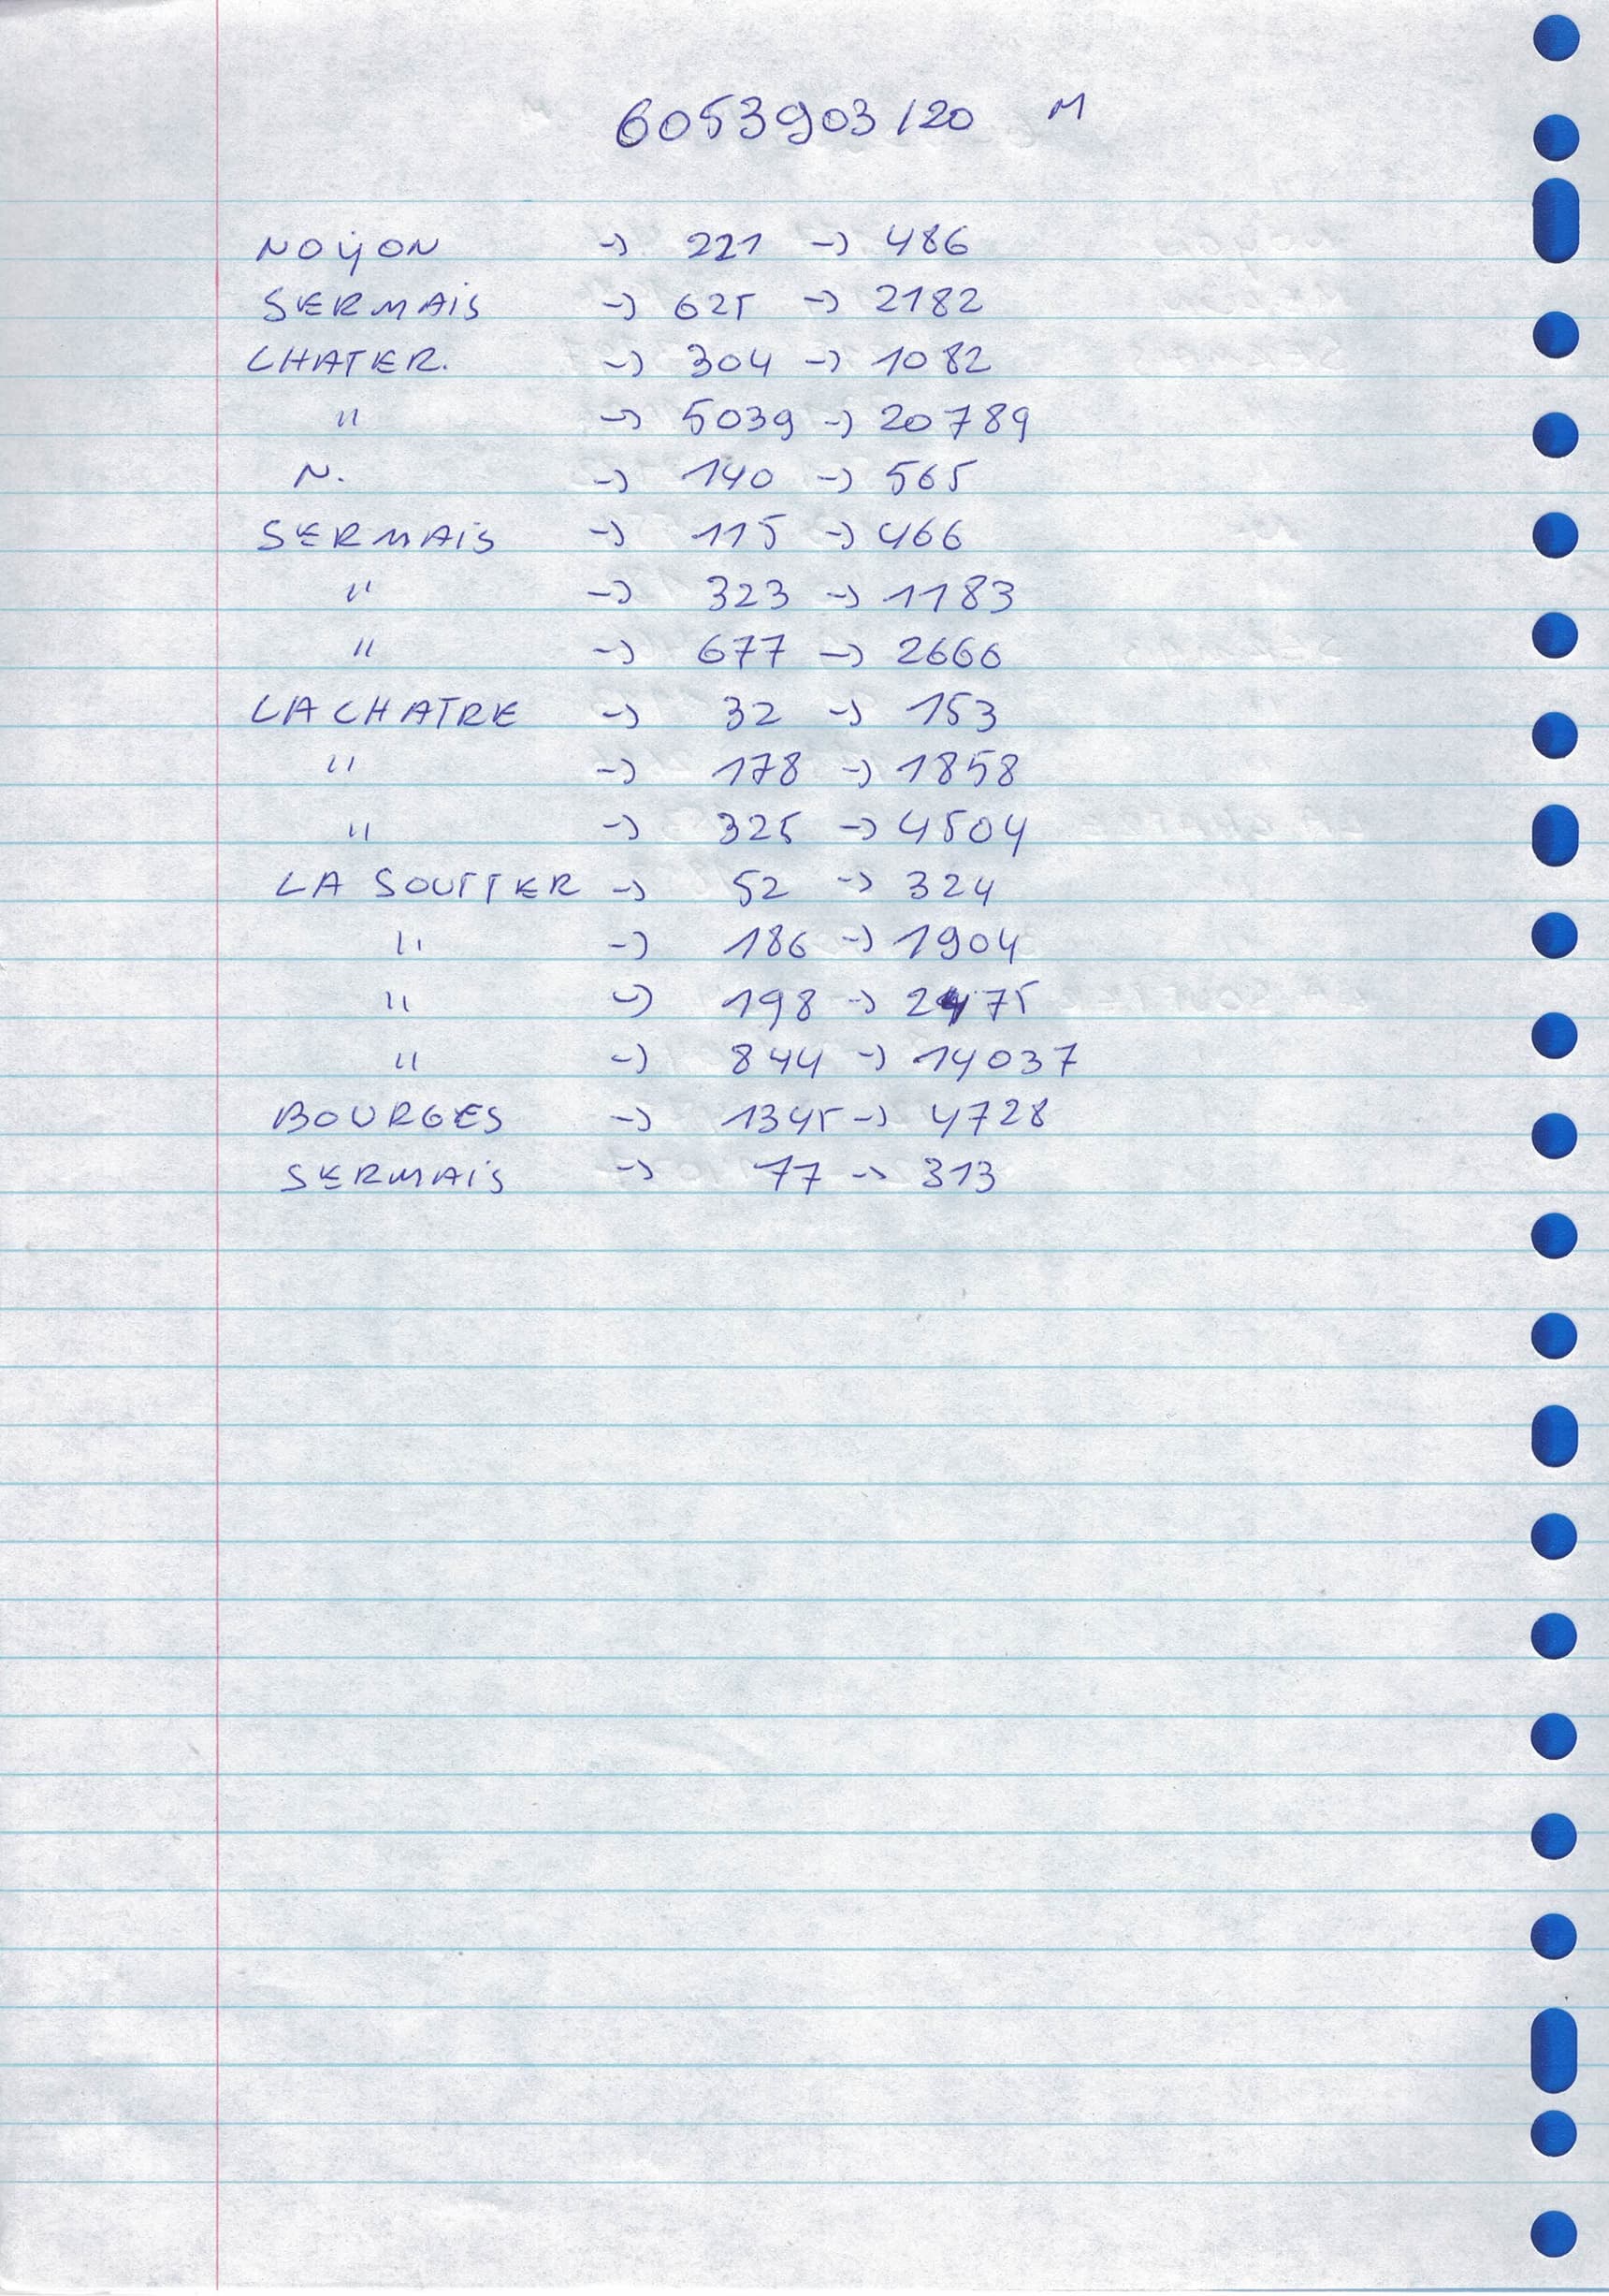 6053903/20 M
NOYON -> 221 -> 486
SERMAIS -> 625 -> 2182
CHATER. -> 304 -> 1082
" -> 5039 -> 20789
N. -> 140 -> 565
SERMAIS -> 115 -> 466
" -> 323 -> 1183
" -> 677 -> 2666
LA CHATRE -> 32 -> 153
" -> 178 -> 1858
" -> 325 -> 4504
LA SOUTTER -> 52 -> 324
" -> 186 -> 1904
" -> 198 -> 2475
" -> 844 -> 14037
BOURGES -> 1345 -> 4728
SERMAIS -> 77 -> 313